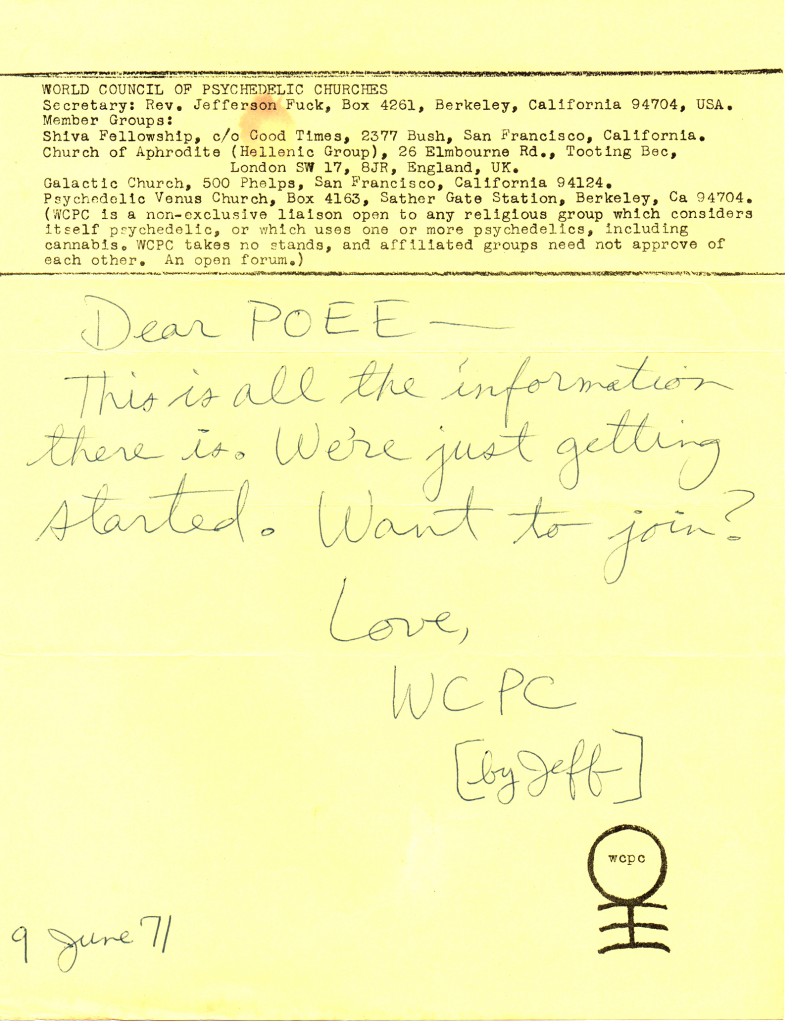 WORLD COUNCIL OF PSYCHEDELIC CHURCHES
Secretary: Rev. Jefferson Fuck, Box 4261, Berkeley, California 94704, USA.
Member Groups:
Shiva Fellowship, c/o Good Times, 2377 Bush, San Francisco, California.
Church of Aphrodite (Hellenic Group), 26 Elmbourne Rd., Tooting Bec,
London SW 17, 8JR, England, UK.
Galactic Church, 500 Phelps, San Francisco, California 94124.
Psychedelic Venus Church, Box 4163, Sather Gate Station, Berkeley, Ca 94704.
(WCPC is a non-exclusive liaison open to any religious group which considers
itself psychedelic, or which uses one or more psychedelics, including
cannabis. WCPC takes no stands, and affiliated groups need not approve of
each other. An open forum.)
Dear POEE —
This is all the information
there is. We're just getting
started. Want to join?
Love,
WCPC
[by Jeff]
wcpc
9 June 71